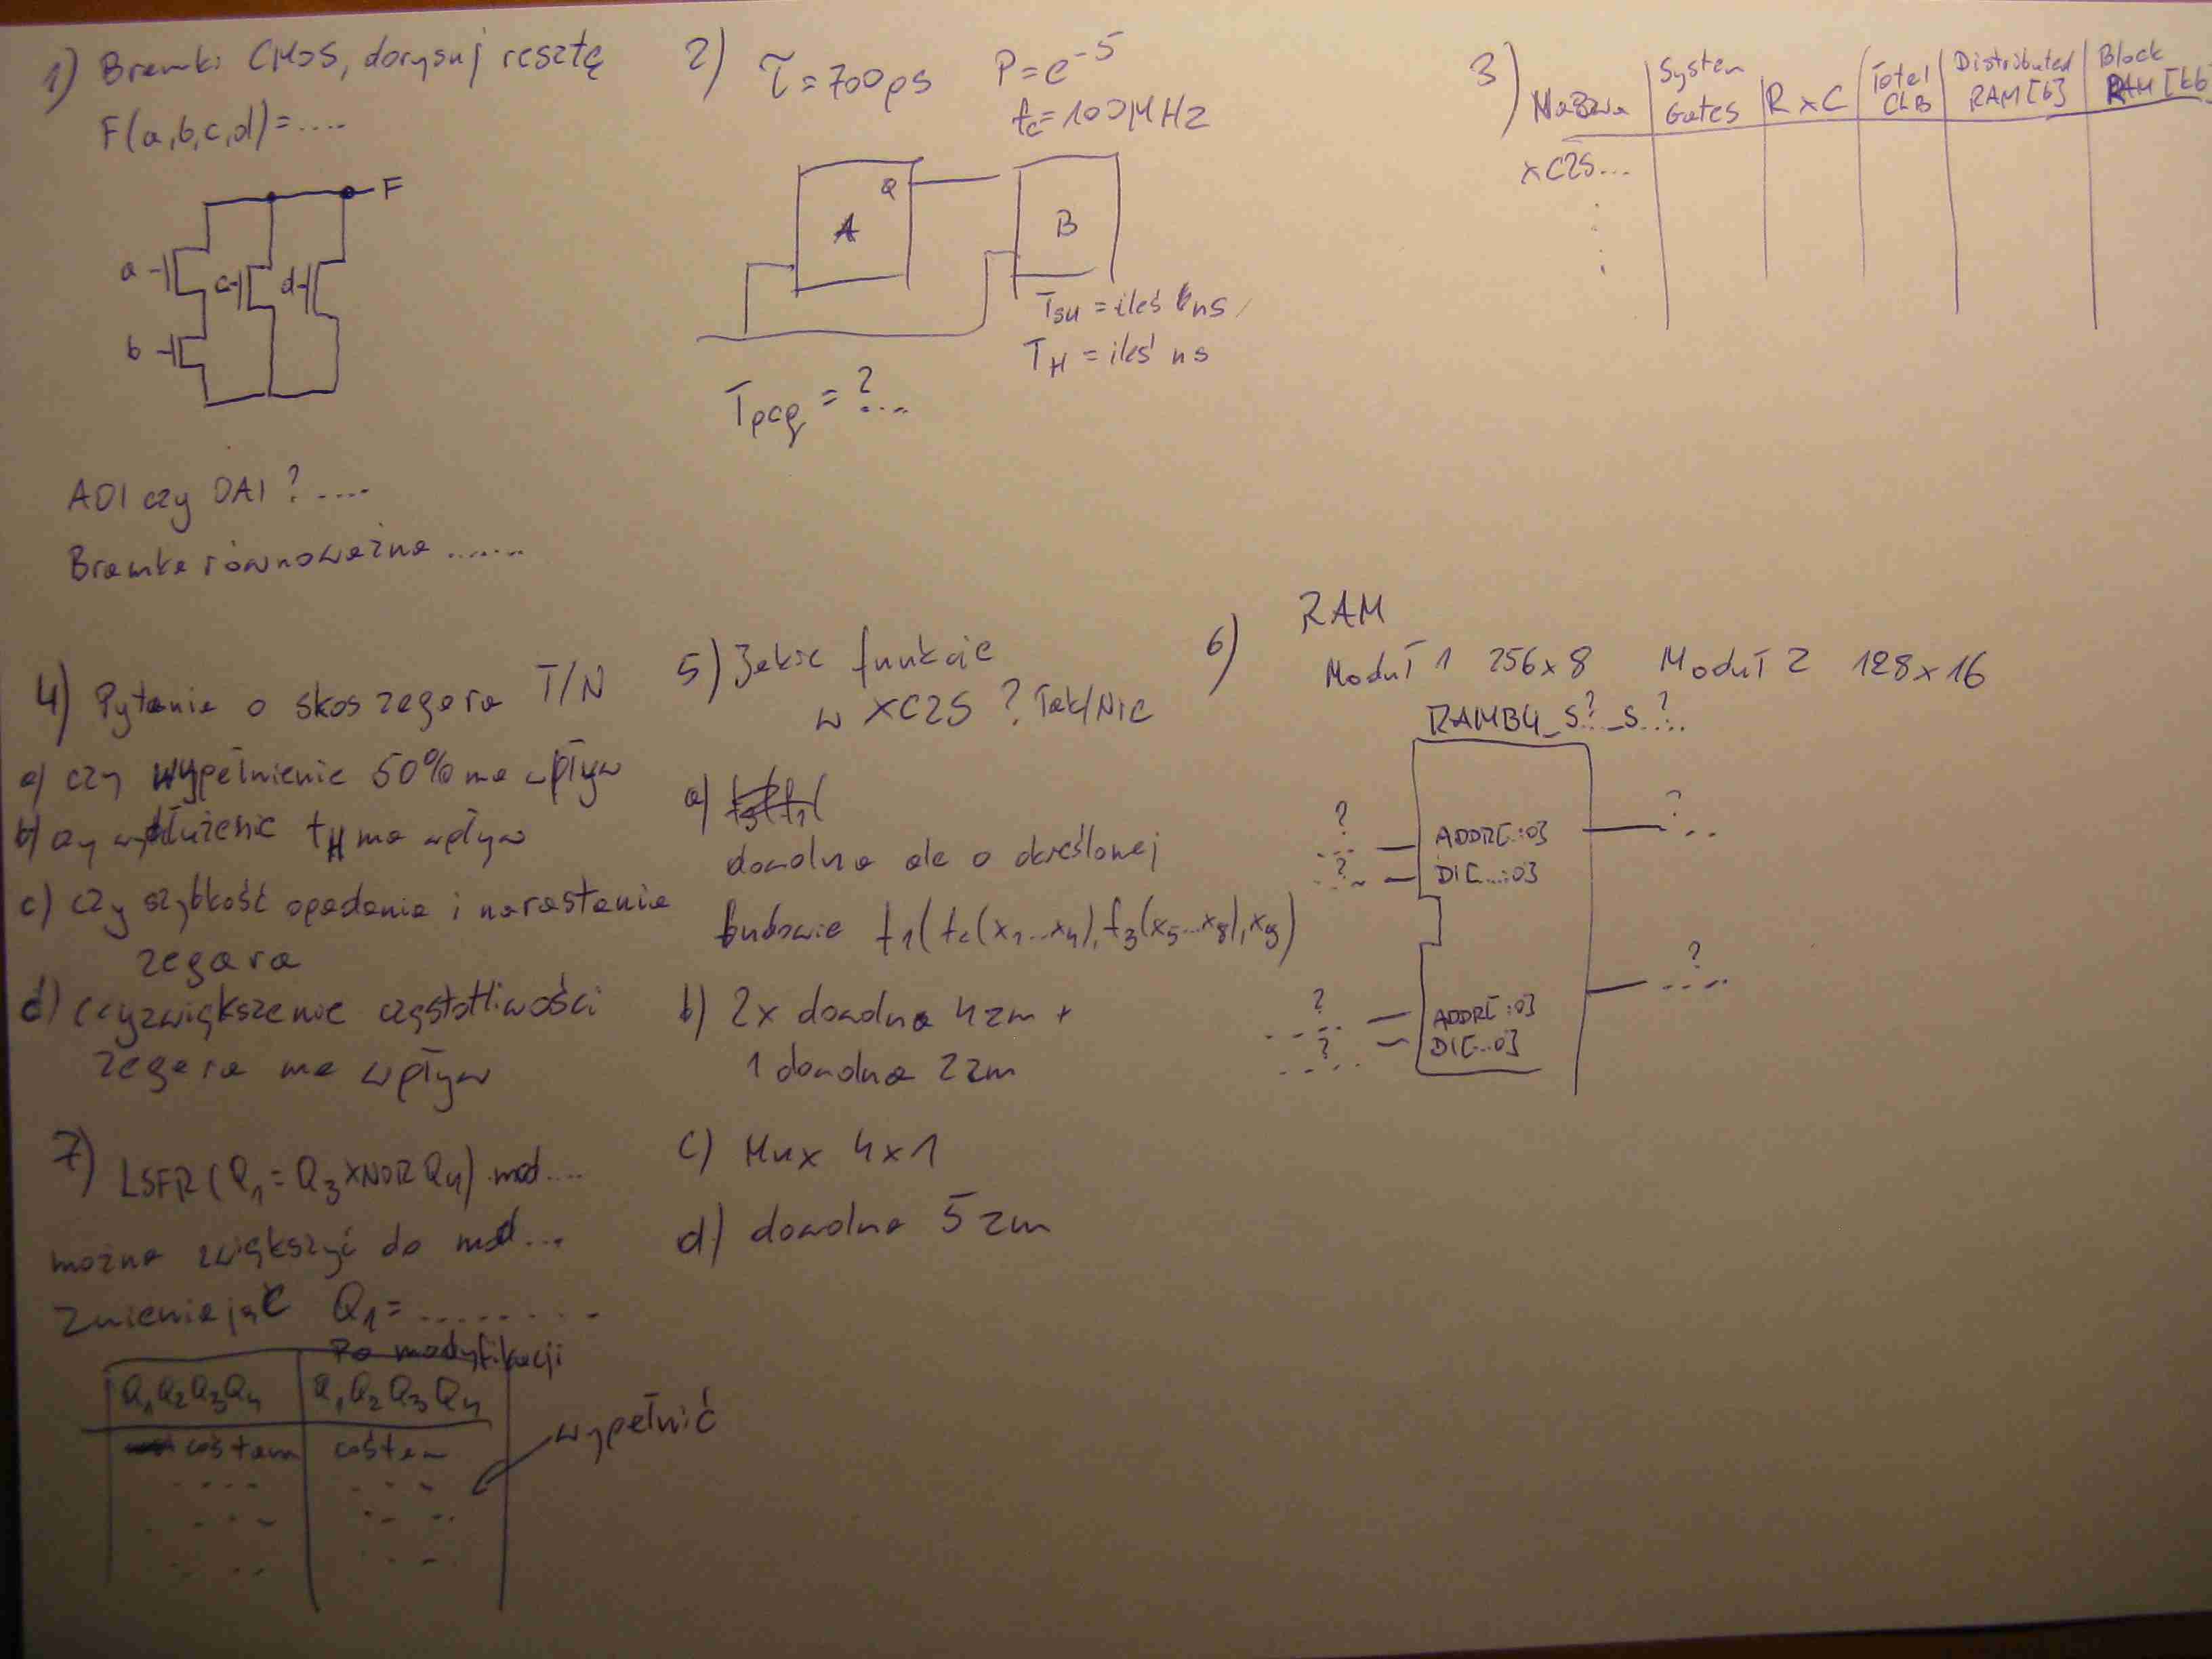 1) Bramki CMOS, dorysuj resztę
F(a,b,c,d)=....
F
a
c
d
b
AOI czy OAI ? ....
Bramka równoważna .......
2) τ = 700ps P = e⁻⁵
fc = 100MHz
Q
A
B
Tsu = ileś ns
TH = ileś ns
Tpcq = ?...
3) Nazwa System Gates R x C Total CLB Distributed RAM [b] Block RAM [kb]
XC2S...
4) Pytania o skos zegara T/N
a) czy wypełnienie 50% ma wpływ
b) czy wydłużenie tH ma wpływ
c) czy szybkość opadania i narastania
zegara
d) czy zwiększenie częstotliwości
zegara ma wpływ
5) Jakie funkcje
w XC2S ? Tak/Nie
a)
dowolna ale o określonej
budowie f1(f2(x1...x4),f3(x5...x8),x9)
b) 2x dowolna 4zm +
1 dowolna 2zm
c) Mux 4x1
d) dowolna 5zm
6) RAM
Moduł 1 256x8 Moduł 2 128x16
RAMB4_S?..._S..?..
? ADDR[..:0] ?
? DI[...:0]
? ADDR[:0] ?
? DI[...0]
7) LSFR (Q1 = Q3 XNOR Q4) mod....
można zwiększyć do mod...
Zmieniając Q1=........
Po modyfikacji
Q1Q2Q3Q4 Q1Q2Q3Q4
coś tam coś tam
wypełnić